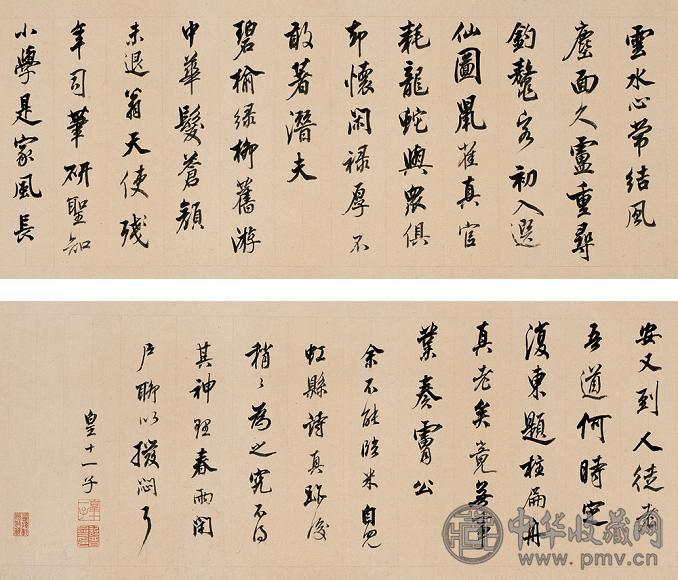 雲水心常結風
塵面久盧重尋
釣鼇客初入選
仙圖鼠雀真官
耗龍蛇與眾俱
却懷閑祿厚不
敢著潛夫
碧榆綠柳舊游
中華髮蒼顏
未退翁天使殘
年司筆研聖知
小學是家風長
安又到人徒老
吾道何時定
復東題柱扁舟
真老矣竟無事
業奏膚公
余不能臨米自見
虹縣詩真跡後
稍〻為之究不得
其神理春雨閉
戶聊以撥悶耳
皇十一子
中华收藏网
www.pmv.cn